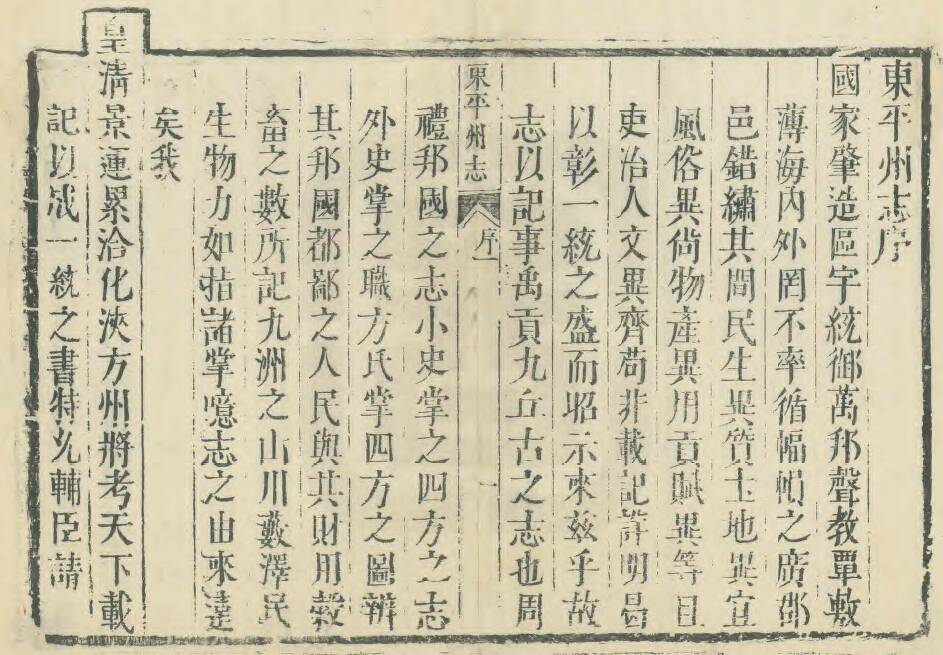 東平州志序
國家肇造區宇統御萬邦聲教覃敷
薄海內外罔不率循幅幀之廣郡
邑錯繡其間民生異質土地異宜
風俗異尚物產異用貢賦異等且
吏治人文異齊苟非載記詳明曷
以彰一統之盛而昭示來茲乎故
志以記事禹貢九丘古之志也周
東平州志
序一
禮邦國之志小史掌之四方之志
外史掌之職方氏掌四方之圖辨
其邦國都鄙之人民與其財用穀
畜之數所記九洲之山川藪澤民
生物力如指諸掌噫志之由來遠
矣我
皇清景運累洽化浹方州將考天下載
記以成一統之書特允輔臣請